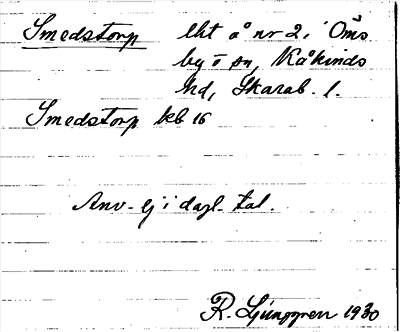 Smedstorp lht å nr 2, i Oms
by o sn, Kåkinds
hd, Skarab. l.
Smedstorp kb 16
Anv. ej i dagl. tal.
R. Ljunggren 1930